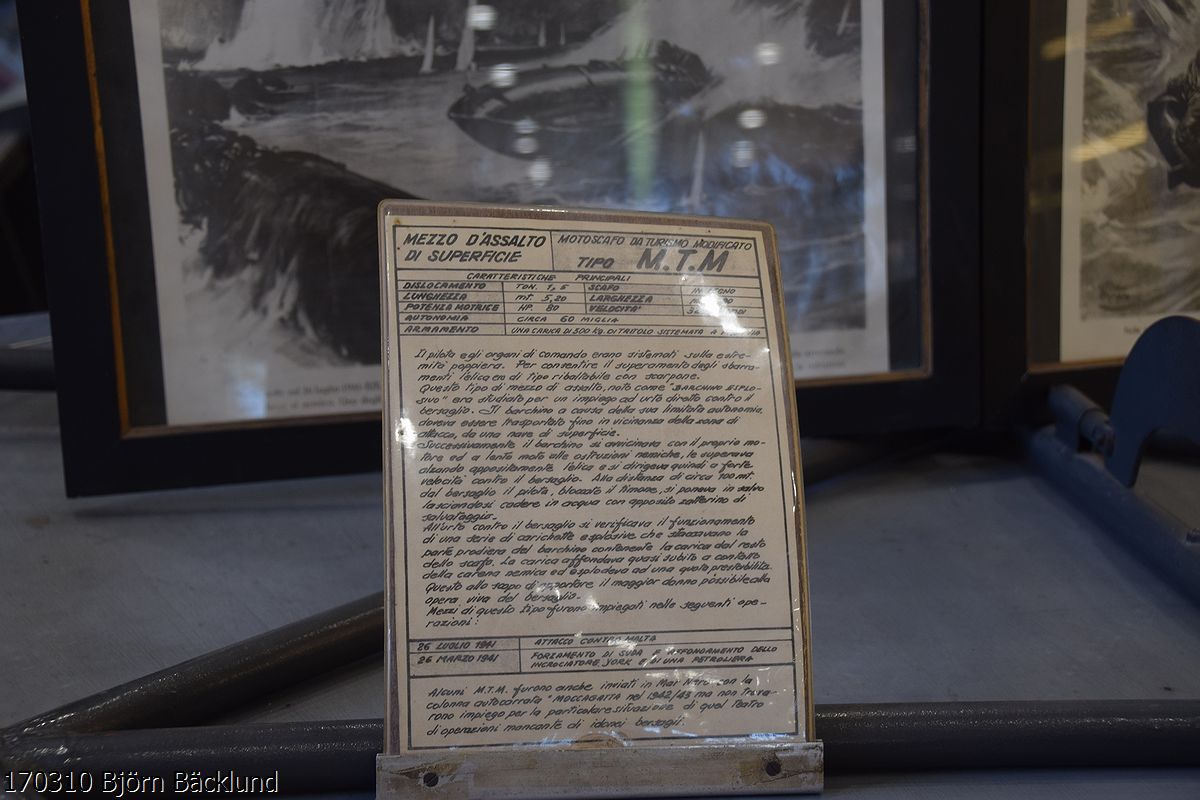 MEZZO D'ASSALTO
DI SUPERFICIE
MOTOSCAFO DA TURISMO MODIFICATO
TIPO M.T.M
CARATTERISTICHE PRINCIPALI
DISLOCAMENTO TON. 1,5 SCAFO IN LEGNO
LUNGHEZZA mt. 5,20 LARGHEZZA
POTENZA MOTRICE HP. 80 VELOCITA'
AUTONOMIA CIRCA 60 MIGLIA
ARMAMENTO UNA CARICA DI 300 kg. DI TRITOLO SISTEMATA A
Il pilota e gli organi di comando erano sistemati sulla estre-
mità poppiera. Per consentire il superamento degli sbarra-
menti l'elica era di tipo ribaltabile con scarpone.
Questo tipo di mezzo di assalto, noto come "BARCHINO ESPLO-
SIVO" era studiato per un impiego ad urto diretto contro il
bersaglio. Il barchino a causa della sua limitata autonomia,
doveva essere trasportato fino in vicinanza della zona di
attacco, da una nave di superficie.
Successivamente il barchino si avvicinava con il proprio mo-
tore ed a lento moto alle ostruzioni nemiche, le superava
alzando appositamente l'elica e si dirigeva quindi a forte
velocità contro il bersaglio. Alla distanza di circa 100 mt.
dal bersaglio il pilota, bloccato il timone, si poneva in salvo
lasciandosi cadere in acqua con apposito zatterino di
salvataggio.
All'urto contro il bersaglio si verificava il funzionamento
di una serie di carichette esplosive che staccavano la
parte prodiera del barchino contenente la carica dal resto
dello scafo. La carica affondava quasi subito a contatto
della carena nemica ed esplodeva ad una quota prestabilita.
Questo allo scopo di apportare il maggior danno possibile alla
opera viva del bersaglio.
Mezzi di questo tipo furono impiegati nelle seguenti ope-
razioni:
26 LUGLIO 1941 ATTACCO CONTRO MALTA
26 MARZO 1941 FORZAMENTO DI SUDA E AFFONDAMENTO DELLO
INCROCIATORE YORK E DI UNA PETROLIERA
Alcuni M.T.M. furono anche inviati in Mar Nero con la
colonna autocarrata "MOCCAGATTA nel 1942/43 ma non trova-
rono impiego per la particolare situazione di quel Teatro
di operazioni mancante di idonei bersagli.
170310 Björn Bäcklund